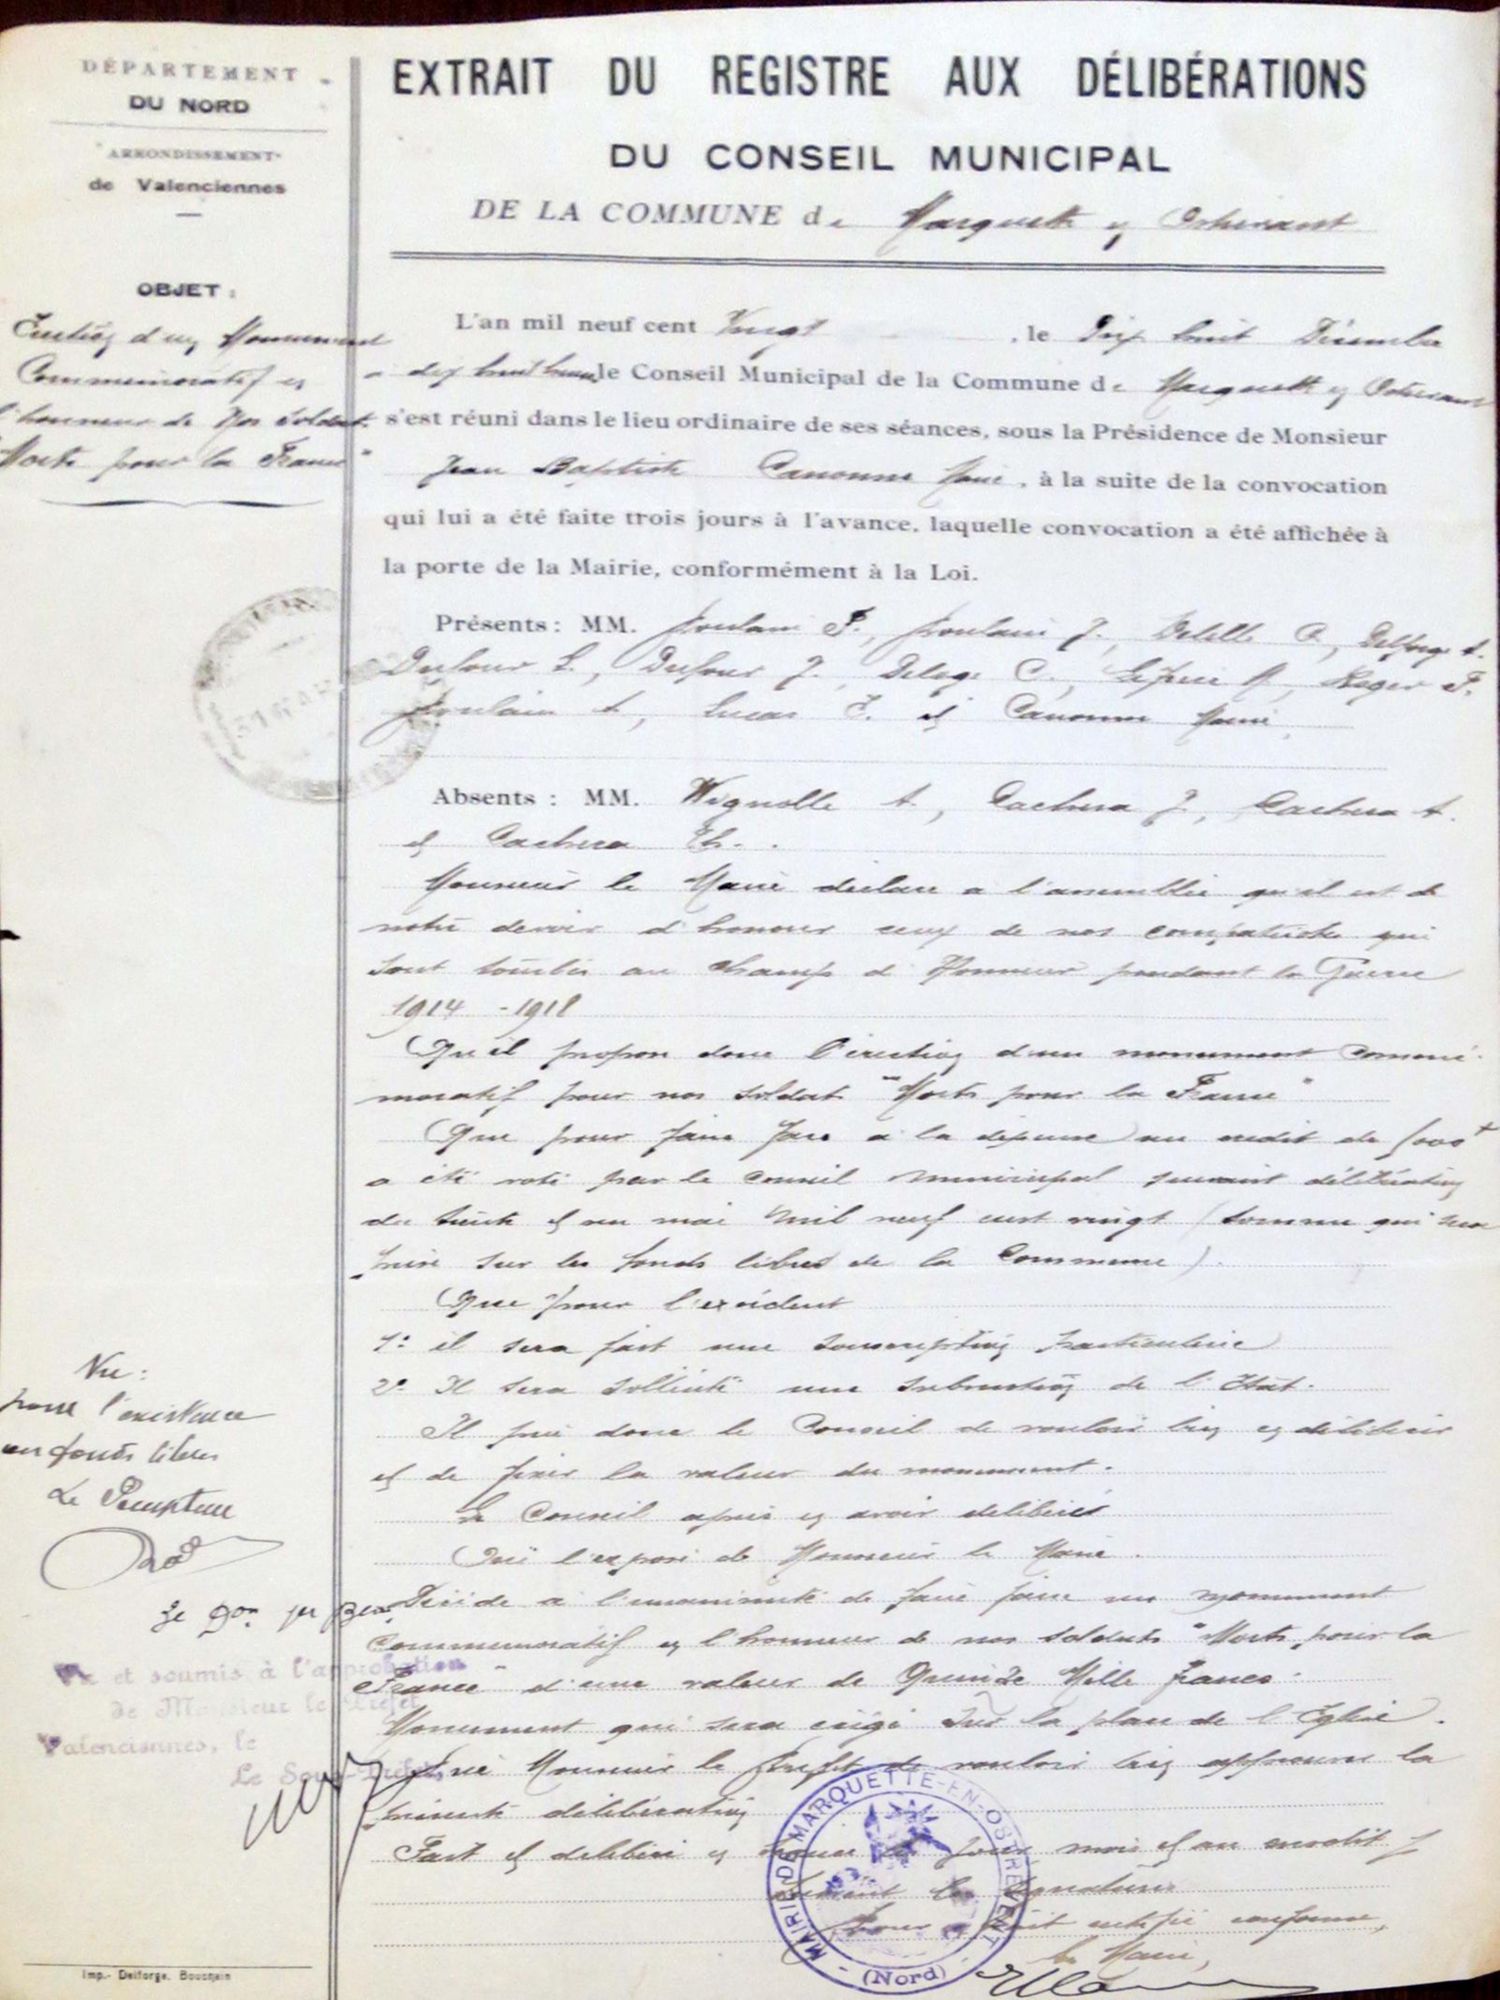 DÉPARTEMENT
DU NORD
ARRONDISSEMENT
de Valenciennes
OBJET :
Erection d'un Monument
Commemoratif en
l'honneur de Nos Soldats
"Morts pour la France"
EXTRAIT DU REGISTRE AUX DÉLIBÉRATIONS
DU CONSEIL MUNICIPAL
DE LA COMMUNE de Marquette en Ostrevant
L'an mil neuf cent Vingt, le Dix huit Décembre
a dix huit heures le Conseil Municipal de la Commune de Marquette en Ostrevant
s'est réuni dans le lieu ordinaire de ses séances, sous la Présidence de Monsieur
Jean Baptiste Canonne Maire, à la suite de la convocation
qui lui a été faite trois jours à l'avance, laquelle convocation a été affichée à
la porte de la Mairie, conformément à la Loi.
Présents : MM. Poulain F., Poulain J., Delille C, Delforge A.
Dufour L., Dufour J., Delage C., A, Roger F.
Poulain A, Lucas E. et Canonne Maire
Absents : MM. Wignolle A, Cachera J, Cachera A.
et Cachera Th.
Monsieur le Maire déclare a l'assemblée qu'il est de
notre devoir d'honorer ceux de nos compatriotes qui
sont tombés au Champ d'Honneur pendant la Guerre
1914 - 1918
Qu'il propose donc l'érection d'un monument Commé-
moratif pour nos soldats "Morts pour la France"
Que pour faire face a la dépense un crédit de 5000 f
a été voté par le Conseil Municipal suivant délibération
du trente et un mai Mil neuf cent vingt (somme qui sera
prise sur les fonds libres de la Commune).
Que pour l'excédent
1º il sera fait une souscription particulière
2º Il sera sollicité une subvention de l'Etat.
Il prie donc le Conseil de vouloir bien en délibérer
et de fixer la valeur du monument.
Le Conseil après en avoir délibéré
Ouï l'exposé de Monsieur le Maire.
Décide a l'unanimité de faire faire un Monument
Commemoratif en l'honneur de nos soldats "Morts pour la
France" d'une valeur de Quinze Mille francs.
Monument qui sera érigé sur la place de l'Eglise.
Prie Monsieur le Préfet de vouloir bien approuver la
présente délibération
Fait et délibéré en séance les jour, mois et an susdits
Suivent les signatures
Pour extrait certifié conforme,
Le Maire,
Vu :
pour l'existence
en fonds libres
Le Percepteur
Vu et soumis à l'approbation
de Monsieur le Préfet
Valenciennes, le
Le Sous-Préfet,
MAIRIE DE MARQUETTE-EN-OSTREVENT
(Nord)
Imp. Delforge, Bouchain